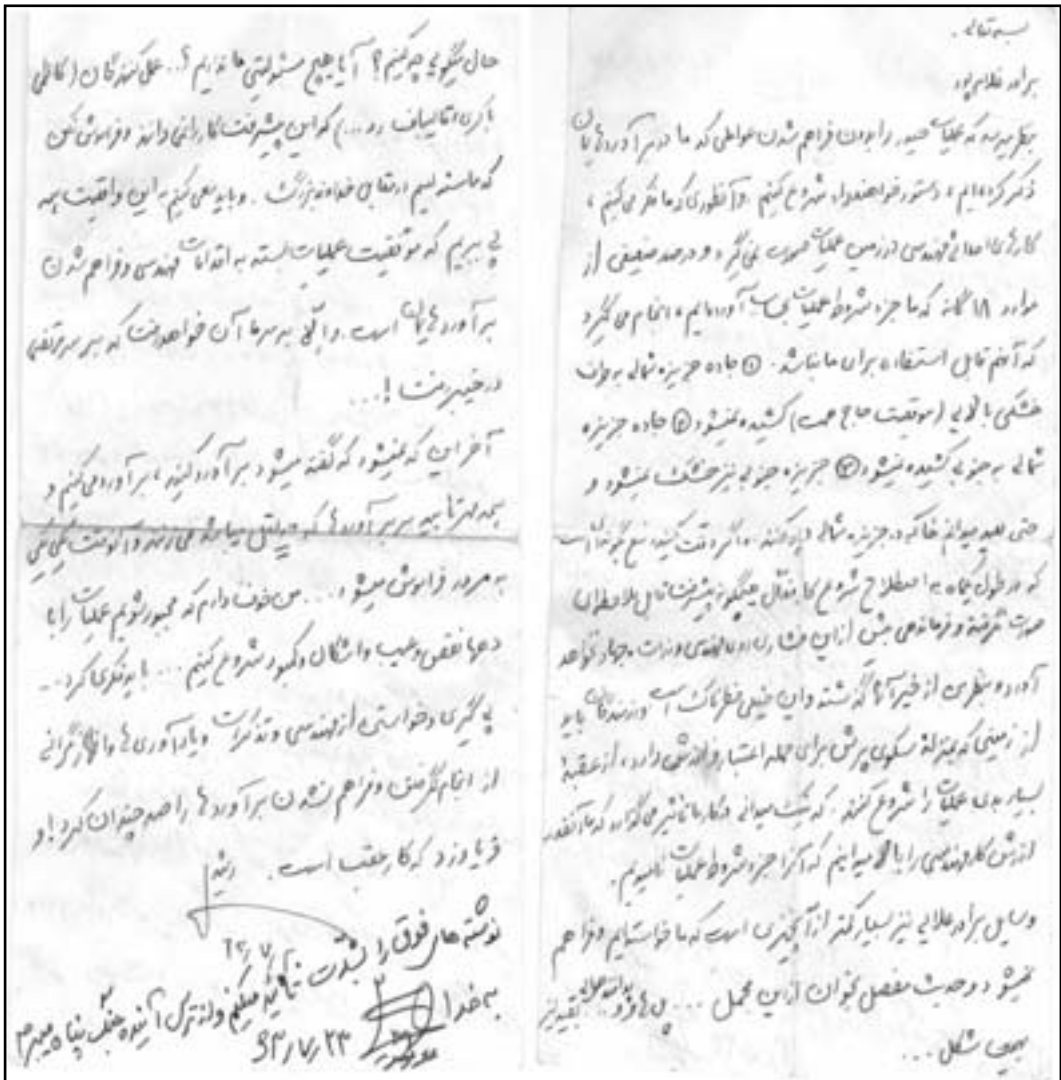 بسمه تعالی.
برادر غلامپور
بنظر میرسد که عملیات را بدون فراهم شدن عواملی که ما در برآوردهایمان
ذکر کرده‌ایم، دستور خواهند داد شروع کنیم. و آنطوری که ما فکر می‌کنیم،
کارهای مهندسی در زمین عملیات صورت نمی‌گیرد و درصد ضعیفی از
موارد ۱۸ گانه که ما جزء شروط عملیات بحساب آورده‌ایم، انجام می‌گیرد
که آنهم قابل استفاده برای ما نباشد. ① جاده جزیره شمالی به
خشکی بالایی (موقعیت حاج همت) کشیده نمیشود ② جاده جزیره
شمالی به جنوبی کشیده نمیشود ③ جزیره جنوبی نیز خشک نمیشود و
حتی جزیره شمالی اگر دقت کنید
که در طول یکماه به اصطلاح شروع کار فعال هیچگونه پیشرفت قابل ملاحظه‌ای
صورت نگرفته و فرماندهی بیش از این فشار روی مهندسی وزارت جهاد نخواهد
آورد و بنظرم از خیر آنها گذشته و این خیلی خطرناک است و رزمندگان باید
از زمینی که بمنزله سکوی پرش برای حمله اعتبار و ارزش دارد، از عقبه
بسیار بدی عملیات را شروع کنند. که
ارزش کار مهندسی را بالا میدانیم که آنرا جزء شروط عملیات نامیدیم.
وسایل برادر علایی نیز بسیار کمتر از آنچیزی است که ما خواسته‌ایم و فراهم
نمیشود و حدیث مفصل بخوان از این مجمل ... بقیه نیز
بهمین شکل ...
حال میگویی چه کنیم؟ آیا هیچ مسئولیتی ما نداریم؟.. عمل کنندگان (کاظمی
باکری، قالیباف، رد...) که این پیشرفت کار را نمی‌دانند و فراموش نکن
که ما مسئولیم در مقابل خداوند بزرگ. و باید سعی کنیم به این واقعیت همه
پی ببریم که موفقیت عملیات بسته به اقدامات مهندسی و فراهم شدن
برآوردهایمان است. والا به سر ما آن خواهد رفت که بر سر مرتضی
در خیبر رفت!...
آخر این که نمیشود که گفته میشود برآورد کنید، برآورد می‌کنیم و
بعد
به مرور فراموش میشود... من خوف دارم که مجبور شویم عملیات را با
دهها نقص و عیب و اشکال و کمبود شروع کنیم... باید فکری کرد...
پیگیری و خواستن از مهندسی و تذکرات و یادآوری‌ها و اظهار نگرانی
از انجام نگرفتن و فراهم نشدن برآوردها را صد چندان کرد! و
فریاد زد که کار عقب است. رشید
نوشته های فوق را بشدت تأیید میکنم و از ترس آینده جنگ پناه میبرم
به خدا
۶۳/۷/۲۳